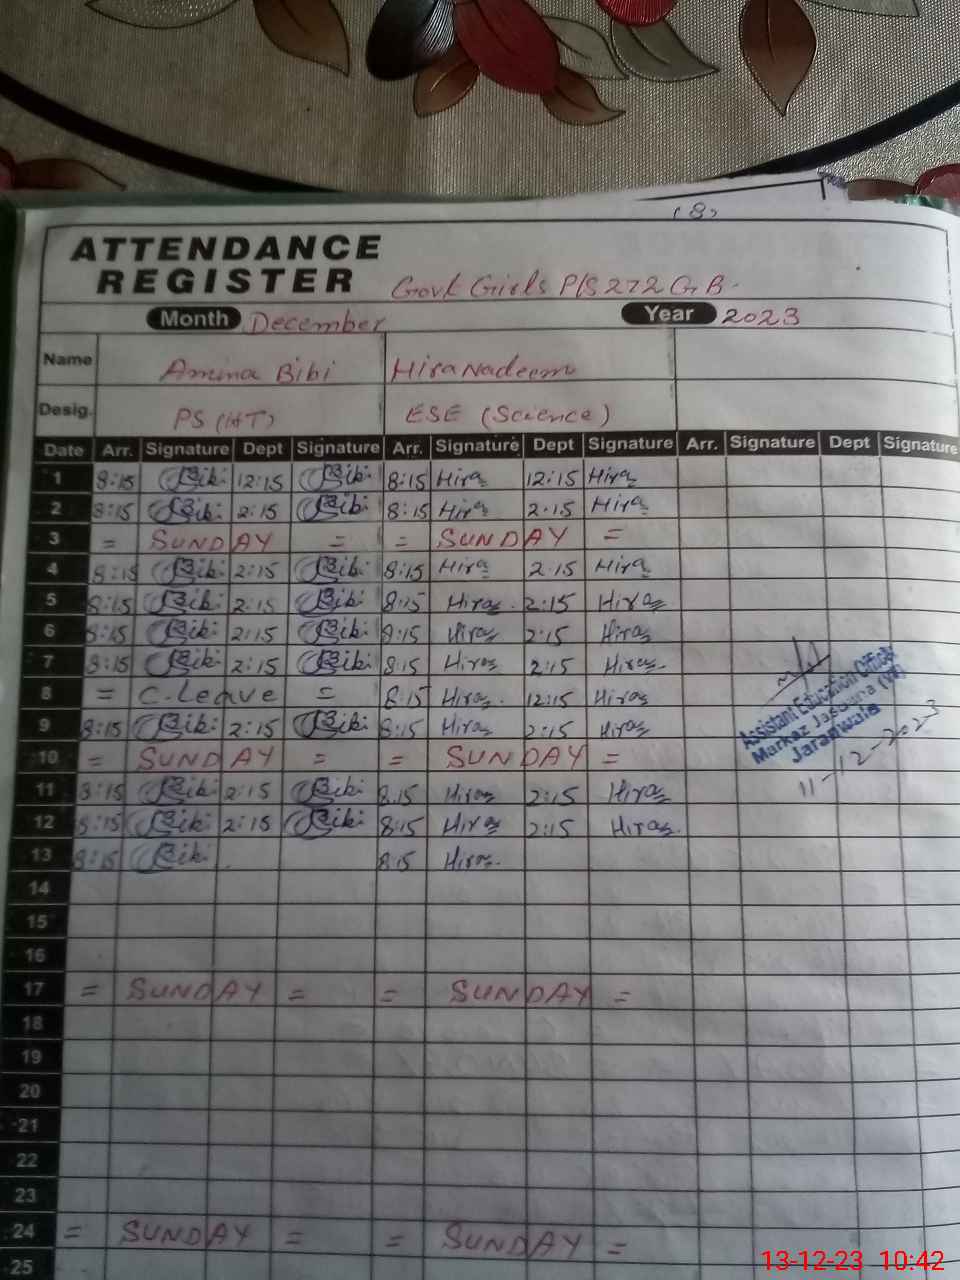 (8)
ATTENDANCE
REGISTER Govt Girls P/S 272 G.B.
Month December Year 2023
Name Amina Bibi Hira Nadeem
Desig. PS (HT) ESE (Science)
Date Arr. Signature Dept Signature Arr. Signature Dept Signature Arr. Signature Dept Signature
1 8:15 Bibi 12:15 Bibi 8:15 Hira 12:15 Hira
2 8:15 Bibi 2:15 Bibi 8:15 Hira 2:15 Hira
3 = SUNDAY = = SUNDAY =
4 8:15 Bibi 2:15 Bibi 8:15 Hira 2:15 Hira
5 8:15 Bibi 2:15 Bibi 8:15 Hira 2:15 Hira
6 8:15 Bibi 2:15 Bibi 8:15 Hira 2:15 Hira
7 8:15 Bibi 2:15 Bibi 8:15 Hira 2:15 Hira
8 = C.Leave = 8:15 Hira 12:15 Hira
9 8:15 Bibi 2:15 Bibi 8:15 Hira 2:15 Hira
Assistant Education Officer
Markaz Jassuana (W)
Jaranwala
11-12-2023
10 = SUNDAY = = SUNDAY =
11 8:15 Bibi 2:15 Bibi 8:15 Hira 2:15 Hira
12 8:15 Bibi 2:15 Bibi 8:15 Hira 2:15 Hira
13 8:15 Bibi 8:15 Hira
14
15
16
17 = SUNDAY = = SUNDAY =
18
19
20
21
22
23
24 = SUNDAY = = SUNDAY =
25
13-12-23 10:42